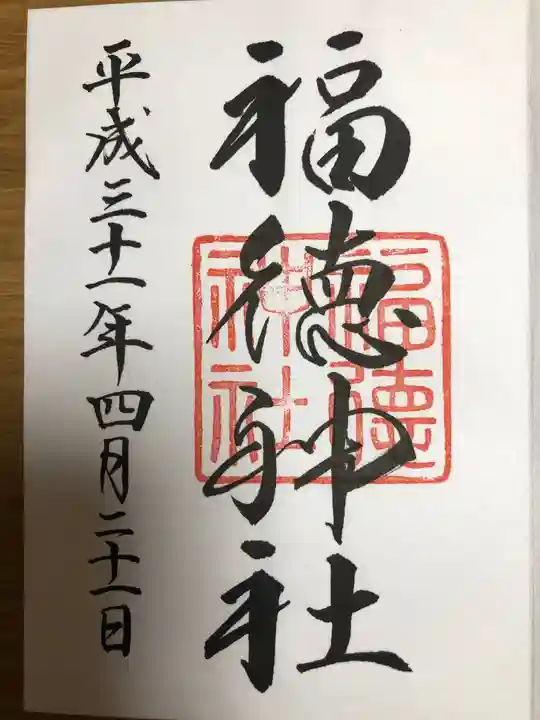 福徳神社
福徳
神社
平成三十一年四月二十一日